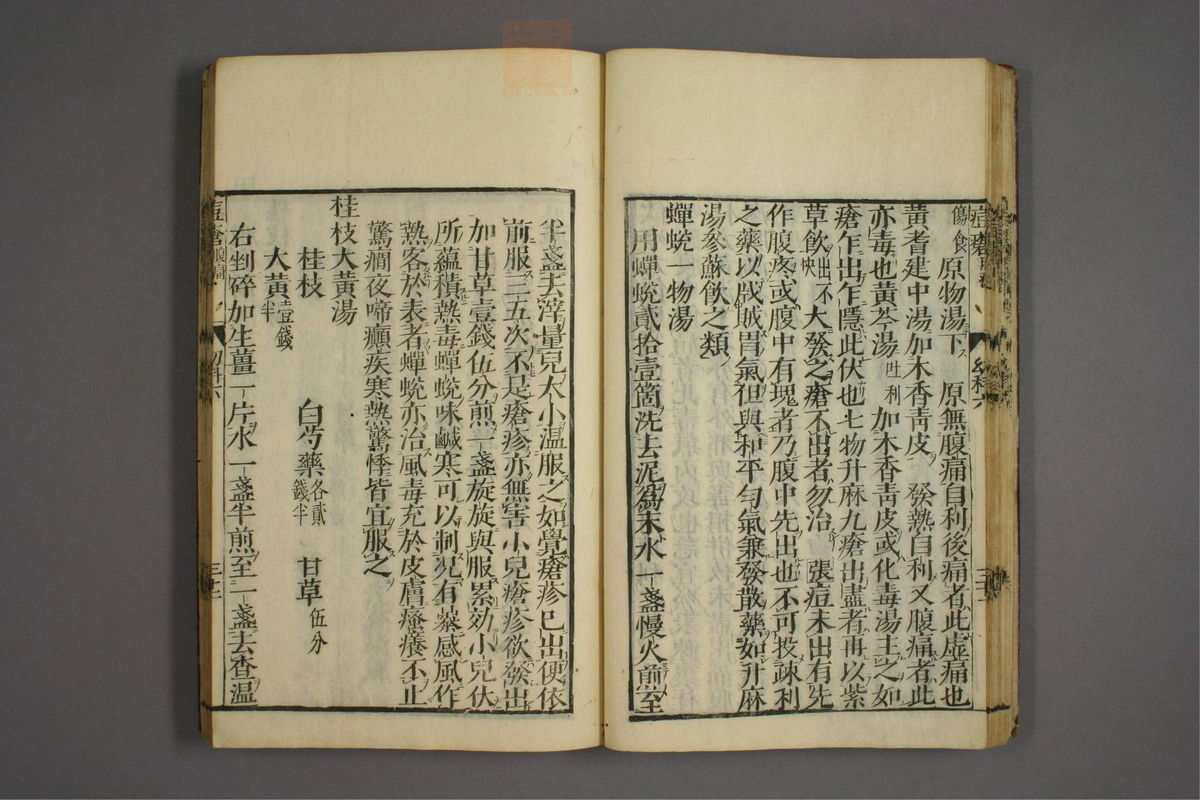 傷食　原物湯下　原無腹痛自利後痛者此虛痛也
黃耆建中湯加木香靑皮　發熱自利又腹痛者此
亦毒也黃芩湯吐利加木香靑皮或化毒湯主之如
瘡乍出乍隱此伏也七物升麻丸瘡出盡者再以紫
草飲出不快大發之瘡不出者勿治　張痘未出有先
作腹疼或腹中有塊者乃腹中先出也不可投疎利
之藥以戕賊胃氣但與和平勻氣兼發散藥如升麻
湯參蘇飲之類
蟬蛻一物湯
用蟬蛻貳拾壹箇洗去泥爲末水一盞慢火前至
半盞去滓量兒大小温服之如覺瘡疹已出便依
前服三五次不是瘡疹亦無害小兒瘡疹欲發出
加甘草壹錢伍分煎一盞旋旋與服累効小兒伏
所蘊積熱毒蟬蛻味鹹寒可以制兒有蘊感風作
熱客於表者蟬蛻亦治風毒充於皮膚瘙癢不止
驚癎夜啼癲疾寒熱驚悸皆宜服之
桂枝大黃湯
桂枝　白芍藥各貳錢半　甘草伍分
大黃壹錢半
右剉碎加生薑一片水一盞半煎至一盞去查温